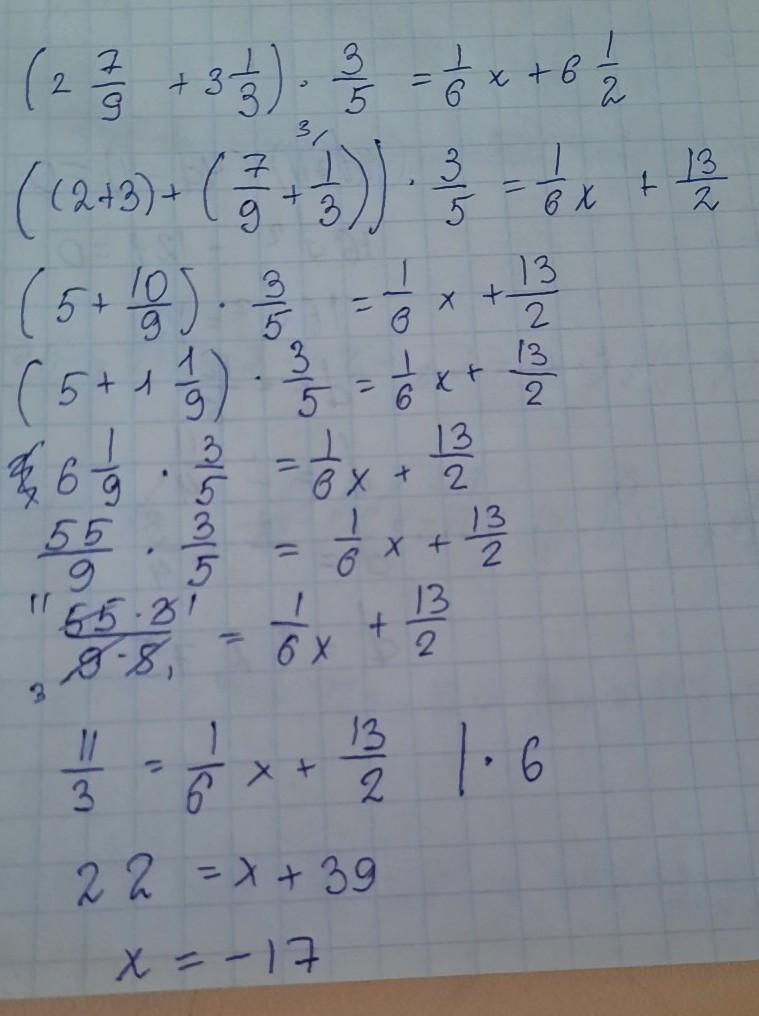 (2 7/9 + 3 1/3) · 3/5 = 1/6 x + 6 1/2
((2+3) + (7/9 + 1/3 3/)) · 3/5 = 1/6 x + 13/2
(5 + 10/9) · 3/5 = 1/6 x + 13/2
(5 + 1 1/9) · 3/5 = 1/6 x + 13/2
6 1/9 · 3/5 = 1/6 x + 13/2
55/9 · 3/5 = 1/6 x + 13/2
11 55 · 3 1 / 3 9 · 5 1 = 1/6 x + 13/2
11/3 = 1/6 x + 13/2 | · 6
22 = x + 39
x = -17